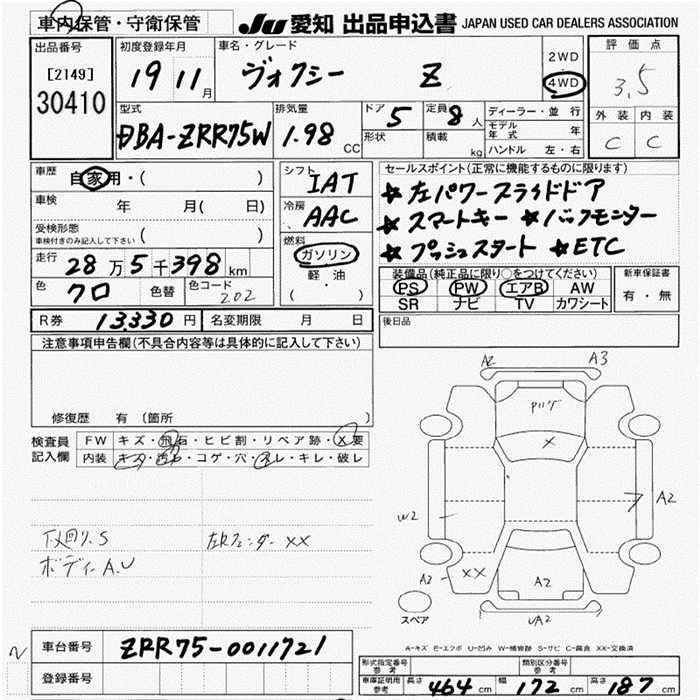 車内保管・守衛保管
JU 愛知 出品申込書 JAPAN USED CAR DEALERS ASSOCIATION
出品番号
[2149]
30410
初度登録年月
19 11月
車名・グレード
ヴォクシー Z
2WD
4WD
評価点
3.5
外装 内装
C C
型式
DBA-ZRR75W
排気量
1.98 CC
ドア 5
形状
定員 8人
積載 kg
ディーラー・並行
モデル年式 年
ハンドル 左・右
車歴 自家用・( )
車検 年 月( 日)
受検形態
車検付きのみ記入して下さい ( )
走行 28万5千398km
色 クロ 色替 色コード 202
シフト IAT
冷房 AAC
燃料
ガソリン
軽油
( )
セールスポイント(正常に機能するものに限ります)
★左パワースライドドア
★スマートキー ★バックモニター
★プッシュスタート ★ETC
装備品(純正品に限り○をつけてください)
PS PW エアB AW
SR ナビ TV カワシート
新車保証書
有・無
R券 13,330円 名変期限 月 日
後日品
注意事項申告欄(不具合内容等は具体的に記入して下さい)
修復歴 有(箇所 )
検査員記入欄
FW キズ・飛石・ヒビ割・リペア跡・X要
内装 キズ・汚レ・コゲ・穴・スレ・キレ・破レ
下回り.S
ボディーA.U
左Rフェンダー XX
A2 A3
X
W2
A2
A3 XX
A2
UA2
スペア
A-キズ E-エクボ U-凹み W-補修跡 S-サビ C-腐食 XX-交換済
車台番号 ZRR75-0011721
登録番号
形式指定番号参考
類別区分番号参考
車庫証明用参考 長さ 464cm 幅 172cm 高さ 187cm